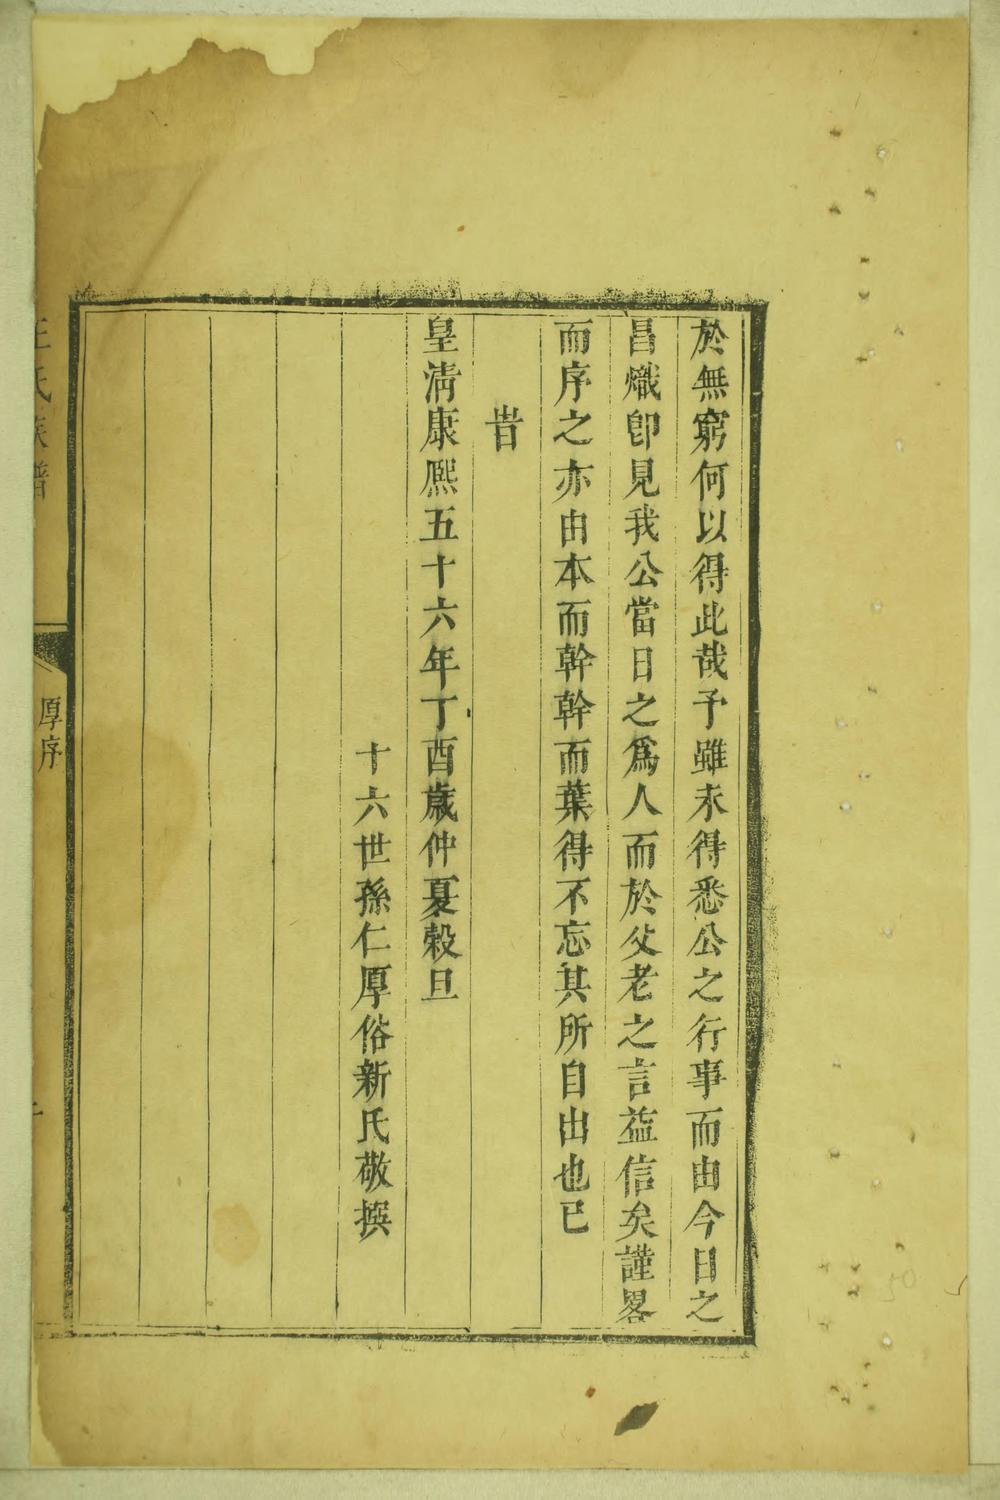 於無窮何以得此哉予雖未得悉公之行事而由今日之
昌熾卽見我公當日之爲人而於父老之言益信矣謹畧
而序之亦由本而幹幹而葉得不忘其所自出也已
旹
皇淸康熙五十六年丁酉歲仲夏榖旦
十六世孫仁厚俗新氏敬撰
王氏族譜
厚序